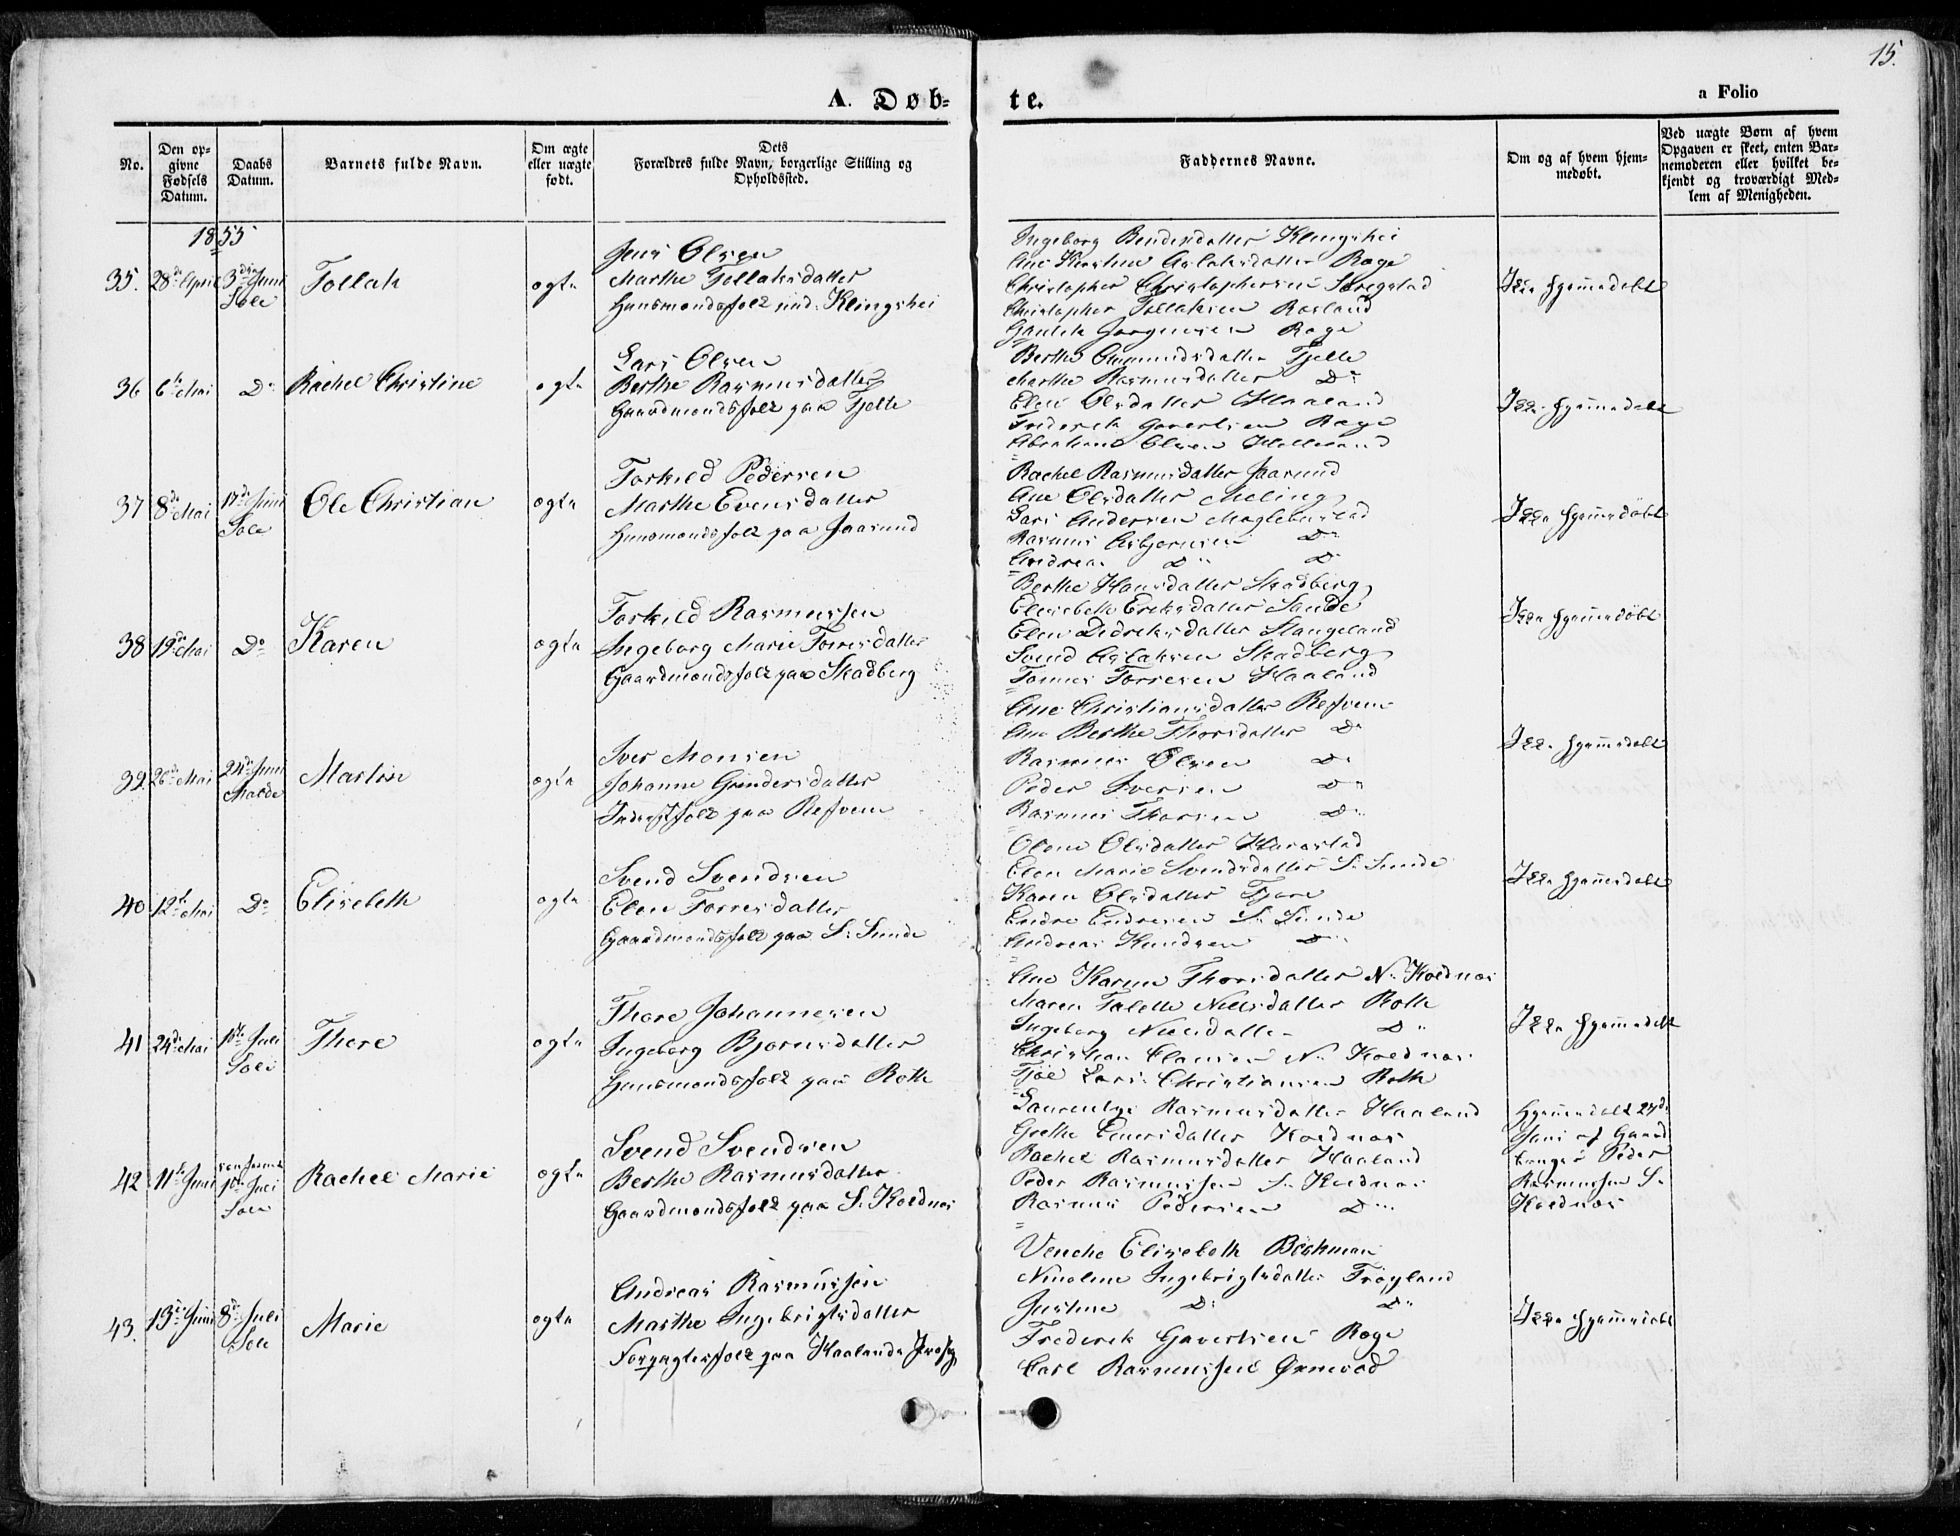 15.
A. Døbte.
a Folio
No.
Den opgivne Fødsels Datum.
Daabs Datum.
Barnets fulde Navn.
Om ægte eller uægte født.
Dets Forældres fulde Navn, borgerlige Stilling og Opholdssted.
Faddernes Navne.
Om og af hvem hjemmedøbt.
Ved uægte Børn af hvem Opgaven er skeet, enten Barnemoderen eller hvilket bekjendt og troværdigt Medlem af Menigheden.
1855
35. 28de April 3die Juni Sole
Tollak
ægte
Jens Olsen
Marthe Tollaksdatter
Huusmandsfolk und. Klingshei
Ingeborg Klingshei
Ane Aslaksdatter Røge
Christopher Christophersen
Christopher Tollaksen Røsland
Jørgensen Røge
Ikke hjemmedøbt
36 6te Mai Do
Rachel Christine
ægte
Lars Olsen
Berthe Rasmusdatter
Gaardmandsfolk paa Tjelte
Berthe Ommundsdatter Tjelte
Marthe Rasmusdatter Do
Elen Olsdatter Haaland
Frederik Govertsen Røge
Abraham Olsen
Ikke hjemmedøbt
37 8de Mai 17de Juni Sole
Ole Christian
ægte
Torkild Pedersen
Marthe Evensdatter
Huusmandsfolk paa Jaasund
Rachel Rasmusdatter Jaasund
Ane Olsdatter Meling
Lars Andersen
Rasmus Asbjørnsen Do
Andreas Do Do
Ikke hjemmedøbt
38 19de Mai Do
Karen
ægte
Torkild Rasmussen
Ingeborg Marie Torresdatter
Gaardmandsfolk paa Skadberg
Berthe Hansdatter Skadberg
Elisebeth Eriksdatter Sande
Elen Didriksdatter Stangeland
Svend Aslaksen Skadberg
Tønnes Torresen Haaland
Ikke hjemmedøbt
39. 26de Mai 24de Juni Malde
Martin
ægte
Iver Monsen
Johanne Gundersdatter
Inderstfolk paa Refsem
Ane Christiansdatter Refsem
Ane Berthe Thorsdatter Do
Rasmus Olsen Do
Peder Iversen Do
Rasmus Thorsen Do
Ikke hjemmedøbt
40 12te Mai Do
Elisebeth
ægte
Svend Svendsen
Elen Torresdatter
Gaardmandsfolk paa S. Sunde
Olene Olsdatter Harastad
Elen Marie Svendsdatter S. Sunde
Karen Olsdatter
Endre Endresen S. Sunde
Andreas Knudsen Do
Ikke hjemmedøbt
41 24de Mai 1ste Juli Sole
Thore
ægte
Thore Johannesen
Ingeborg Bjørnsdatter
Huusmandsfolk paa Roth
Ane Karine Thorsdatter N. Koldnæs
Maren Nielsdatter Roth
Ingeborg Nielsdatter Do
Christian Clausen N. Koldnæs
Lars Christiansen Roth
Ikke hjemmedøbt
42 11te Juni 1ste Juli Sole
Rachel Marie
ægte
Svend Svendsen
Berthe Rasmusdatter
Gaardmandsfolk paa S. Koldnæs
Laurentze Rasmusdatter Haaland
Grethe Koldnæs
Rachel Rasmusdatter Haaland
Peder Rasmussen S. Koldnæs
Rasmus Pedersen Do
Hjemmedøbt 24de
Juni af Gaard
bruger Peder
Rasmussen S.
Koldnæs
43. 13de Juni 8de Juli Sole
Marie
ægte
Andreas Rasmussen
Marthe Ingebrigtsdatter
Forpagterfolk paa Haalands
Venche Elisebeth Beckman
Ninoline Ingebrigtsdatter Trøyland
Justine Do Do
Frederik Govertsen Røge
Carl Rasmussen
Ikke hjemmedøbt